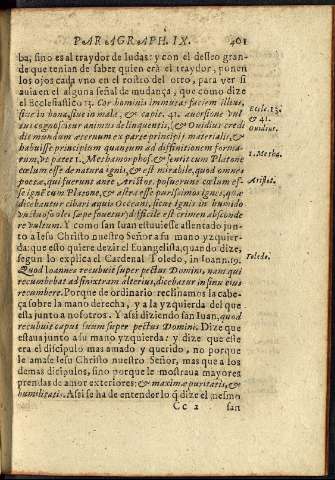 PARAGRAPH. IX. 401
ba, sino es al traydor de Iudas: y con el desseo gran-
de que tenian de saber quien era el traydor, ponen
los ojos cada vno en el rostro del otro, para ver si
auia en el alguna señal de mudança, que como dize
el Ecclesiastico 13. Cor hominis immutat faciem illius,
siue in bona, siue in mala, & capit. 41. auersione vul
tus cognoscitur animus delinquentis, & Ouidius credi
dit mundum aeternum ex parte principij materialis, &
habuisse principium quanquam ad distinctionem forma-
rum, vt patet 1. Methamorphos. & sentit cum Platone
cœlum esse de natura ignis, & est mirabile, quod omnes
poetæ, qui fuerunt ante Aristote. posuerunt cœlum es-
se igneũ cum Platone, & altra esse purissimos ignes, quæ
dicebantur cibari aquis Occeani, sicut ignis in humido
vnctuoso olei sæpe fouetur; difficile est crimen absconde
re vultum. Y como san Iuan estuuiesse assentado jun-
to a Iesu Christo nuestro Señor a su mano yzquier-
da: que esto quiere dezir el Euangelista, quando dize,
segun lo explica el Cardenal Toledo, in Ioann. 19.
Quod Ioannes recubuit super pectus Domini, nam qui
recumbebat ad sinixtram alterius, dicebatur in sinu eius
recumbere. Porque de ordinario reclinamos la cabe-
ça sobre la mano derecha, y a la yzquierda del que
esta junto a nosotros. Y assi diziendo san Iuan, quod
recubuit caput suum super pectus Domini. Dize que
estaua junto a su mano yzquierda: y dize que este
era el discipulo mas amado y querido, no porque
le amase Iesu Christo nuestro Señor, mas que a los
demas dicipulos, sino porque le mostraua mayores
prendas de amor exteriores: & maxima puritatis, &
humilitatis. Assi se ha de entender lo q̃ dize el mesmo
Cc 2 san
Eccle. 13.
& 41.
Ouidius.
1. Metha.
Aristot.
Toledo.